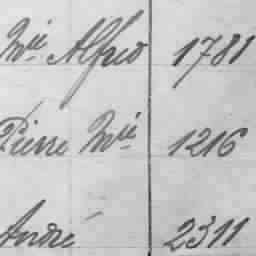 Mie Alfred 1781
Pierre Mie 1216
André 2311